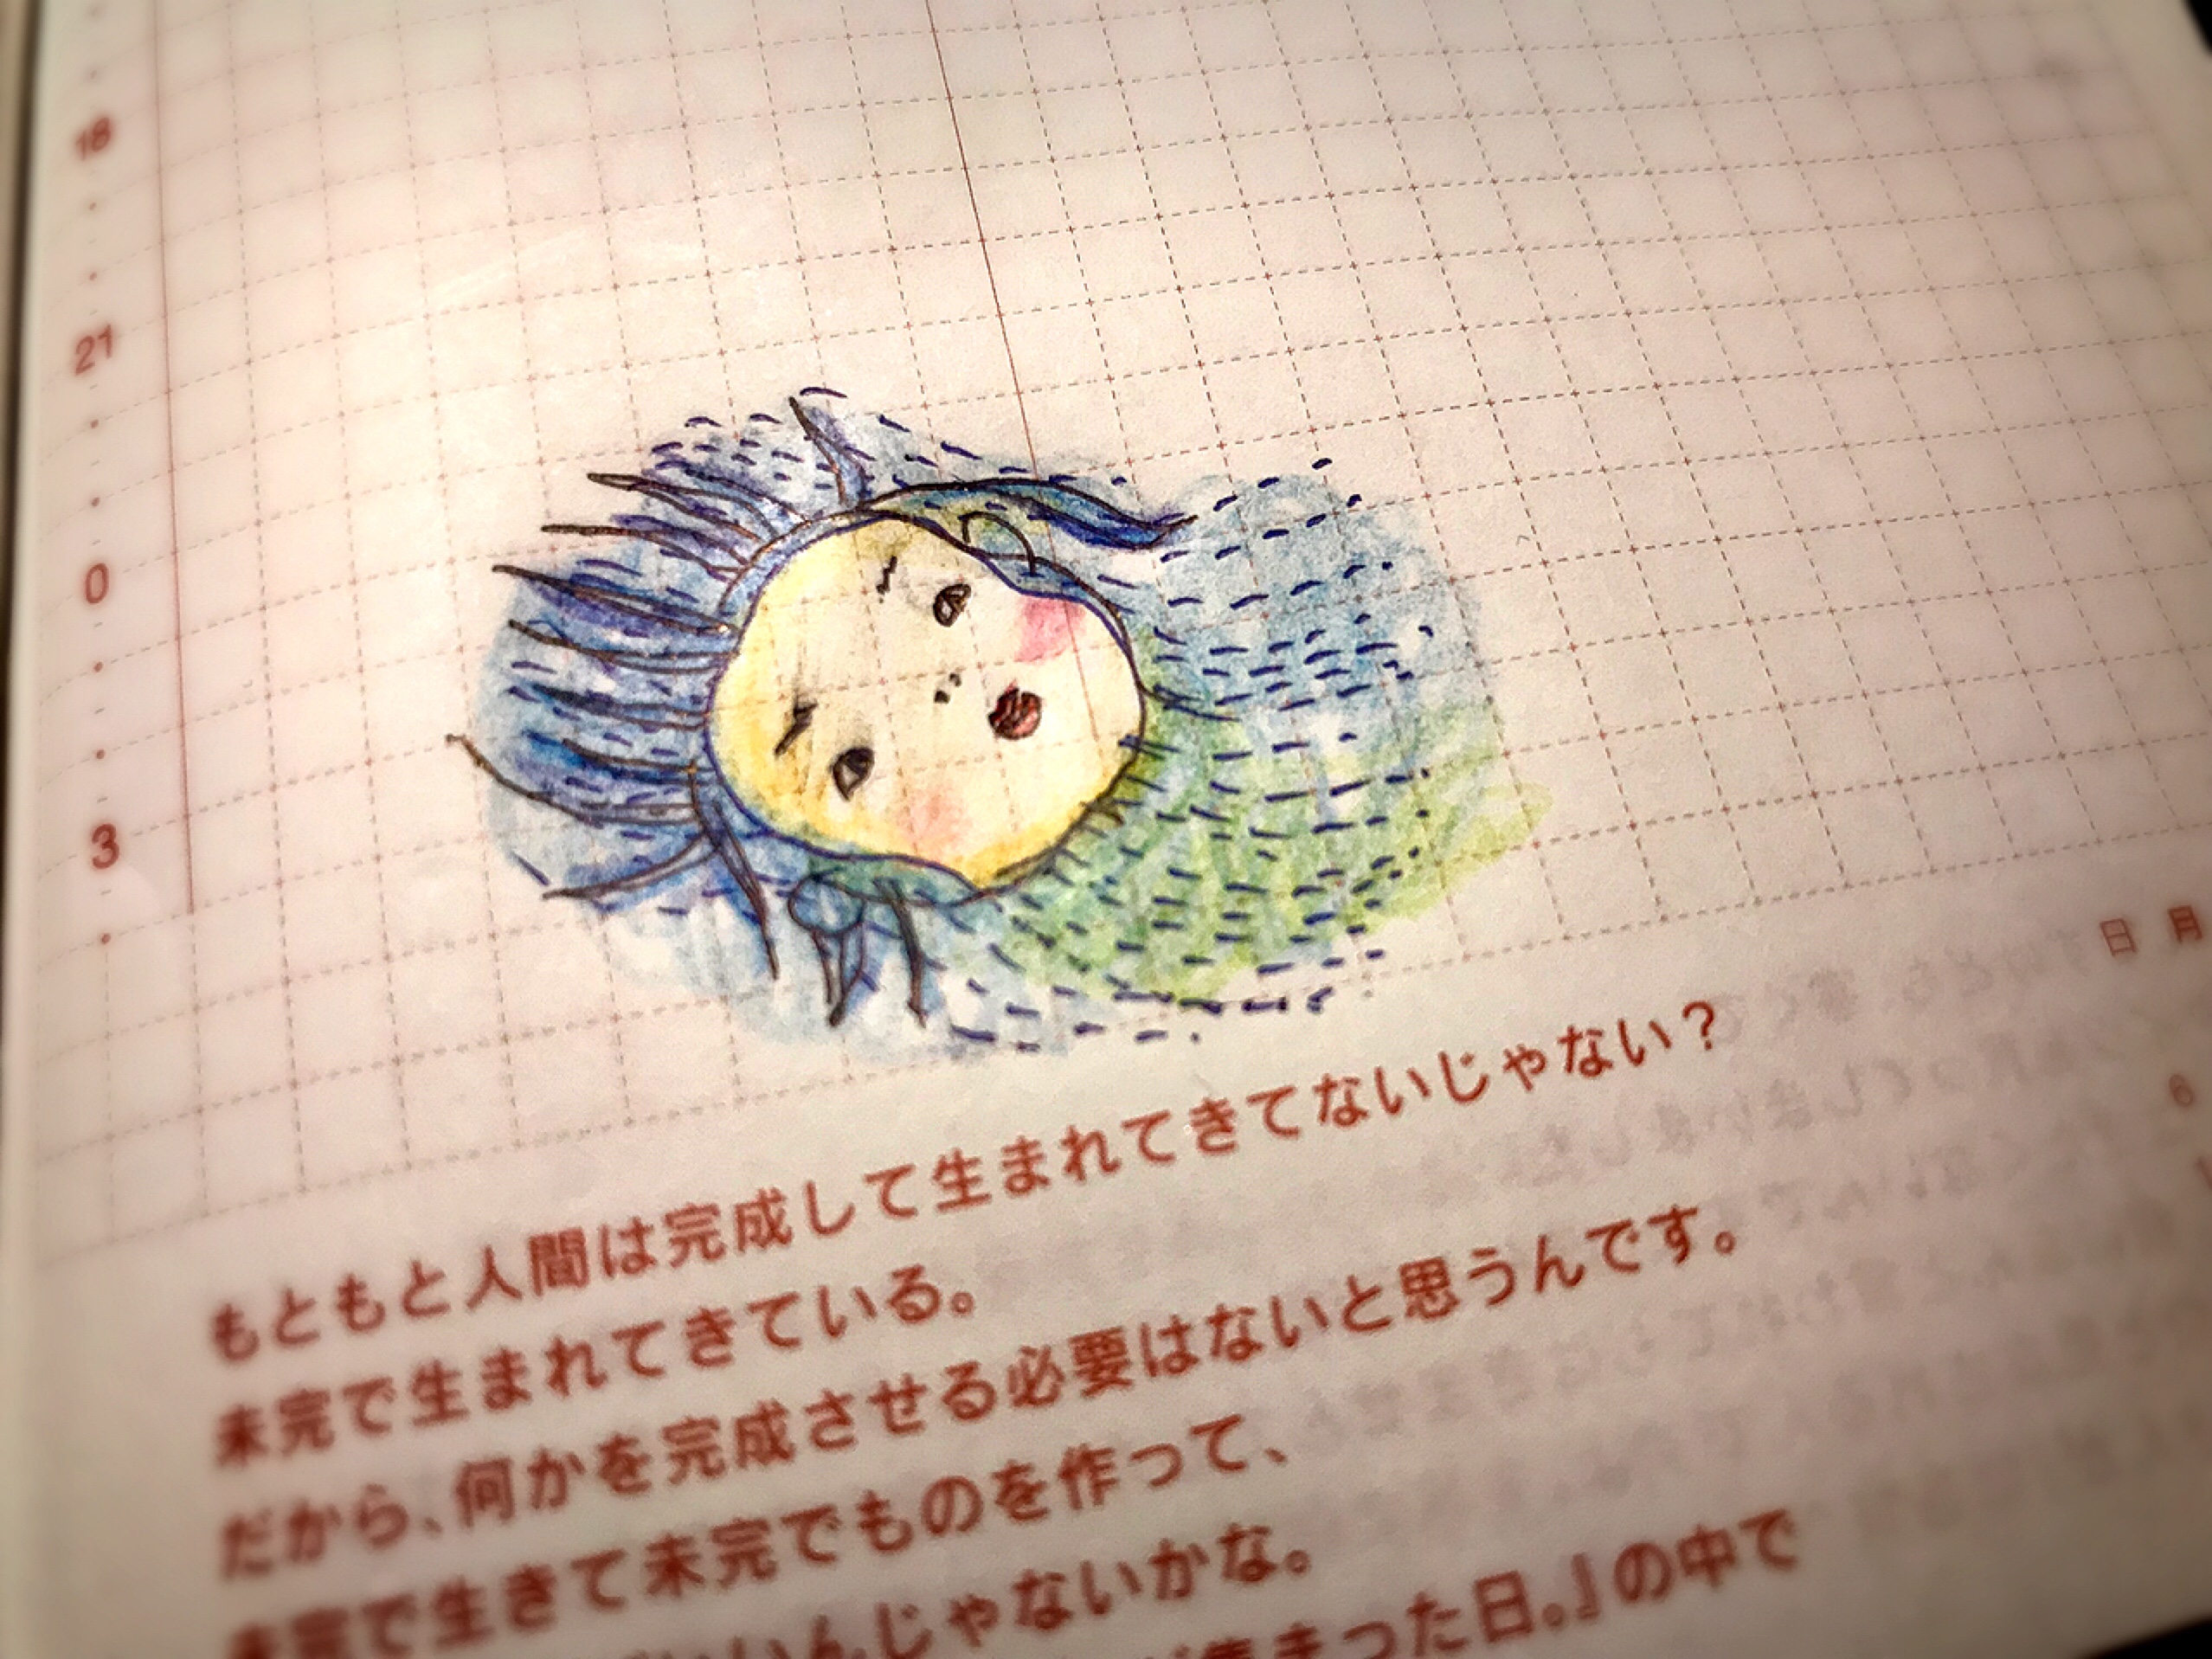 18
21
0
3
日 月
6
もともと人間は完成して生まれてきてないじゃない？
未完で生まれてきている。
だから、何かを完成させる必要はないと思うんです。
未完で生きて未完でものを作って、
いんじゃないかな。
集まった日。』の中で